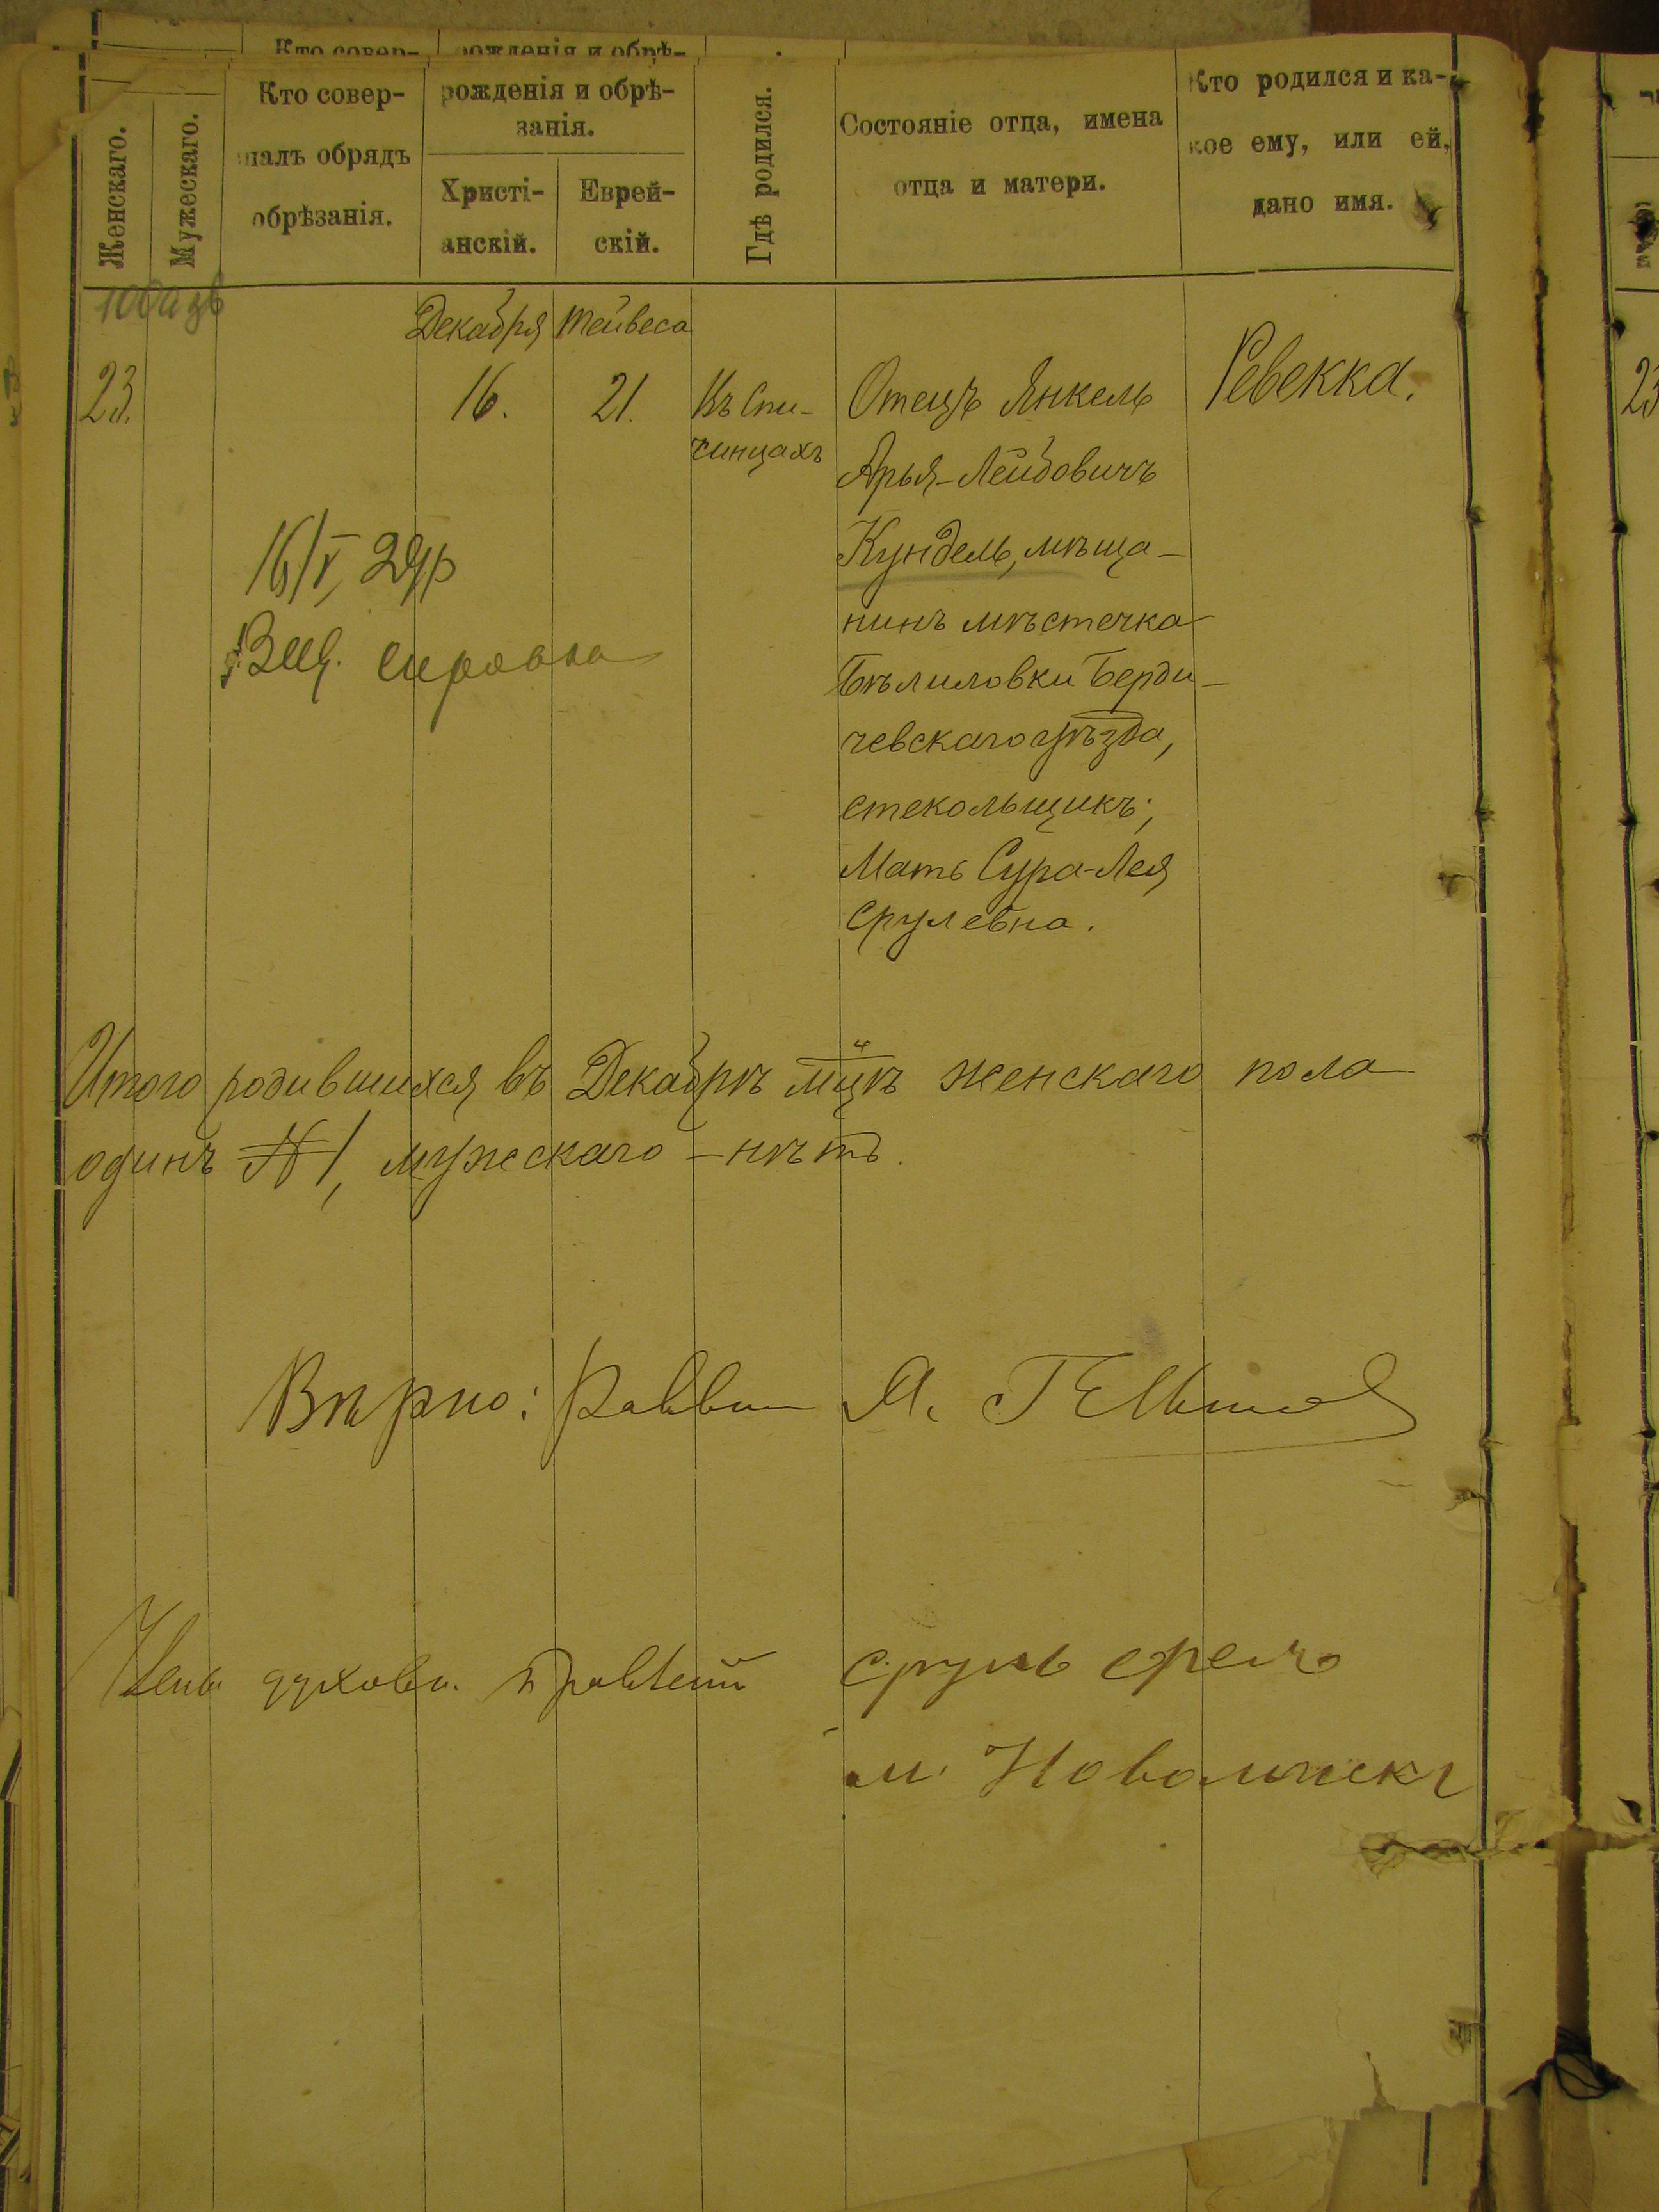 Кто совер-
рожденія и обрѣ-
Женскаго.
Мужескаго.
Кто совер-
шалъ обрядъ
обрѣзанія.
рожденія и обрѣ-
занія.
Христі-
анскій.
Еврей-
скій.
Гдѣ родился.
Состояніе отца, имена
отца и матери.
Кто родился и ка-
кое ему, или ей,
дано имя.
Декабря Тейвеса
23.
16.
21.
Въ Спи-
чинцахъ
Отецъ Янкель
Арья-Лейбовичъ
Кундель, мѣща-
нинъ мѣстечка
Бѣлиловки Берди-
чевскаго уѣзда,
стекольщикъ;
Мать Сура-Лея
Срулевна.
Ревекка.
16/V, 29 р
Итого родившихся въ Декабрѣ м-цѣ женскаго пола
одинъ № 1, мужскаго - нѣтъ.
Вѣрно: Раввин
духовн. Правленій Сруль
м.
23